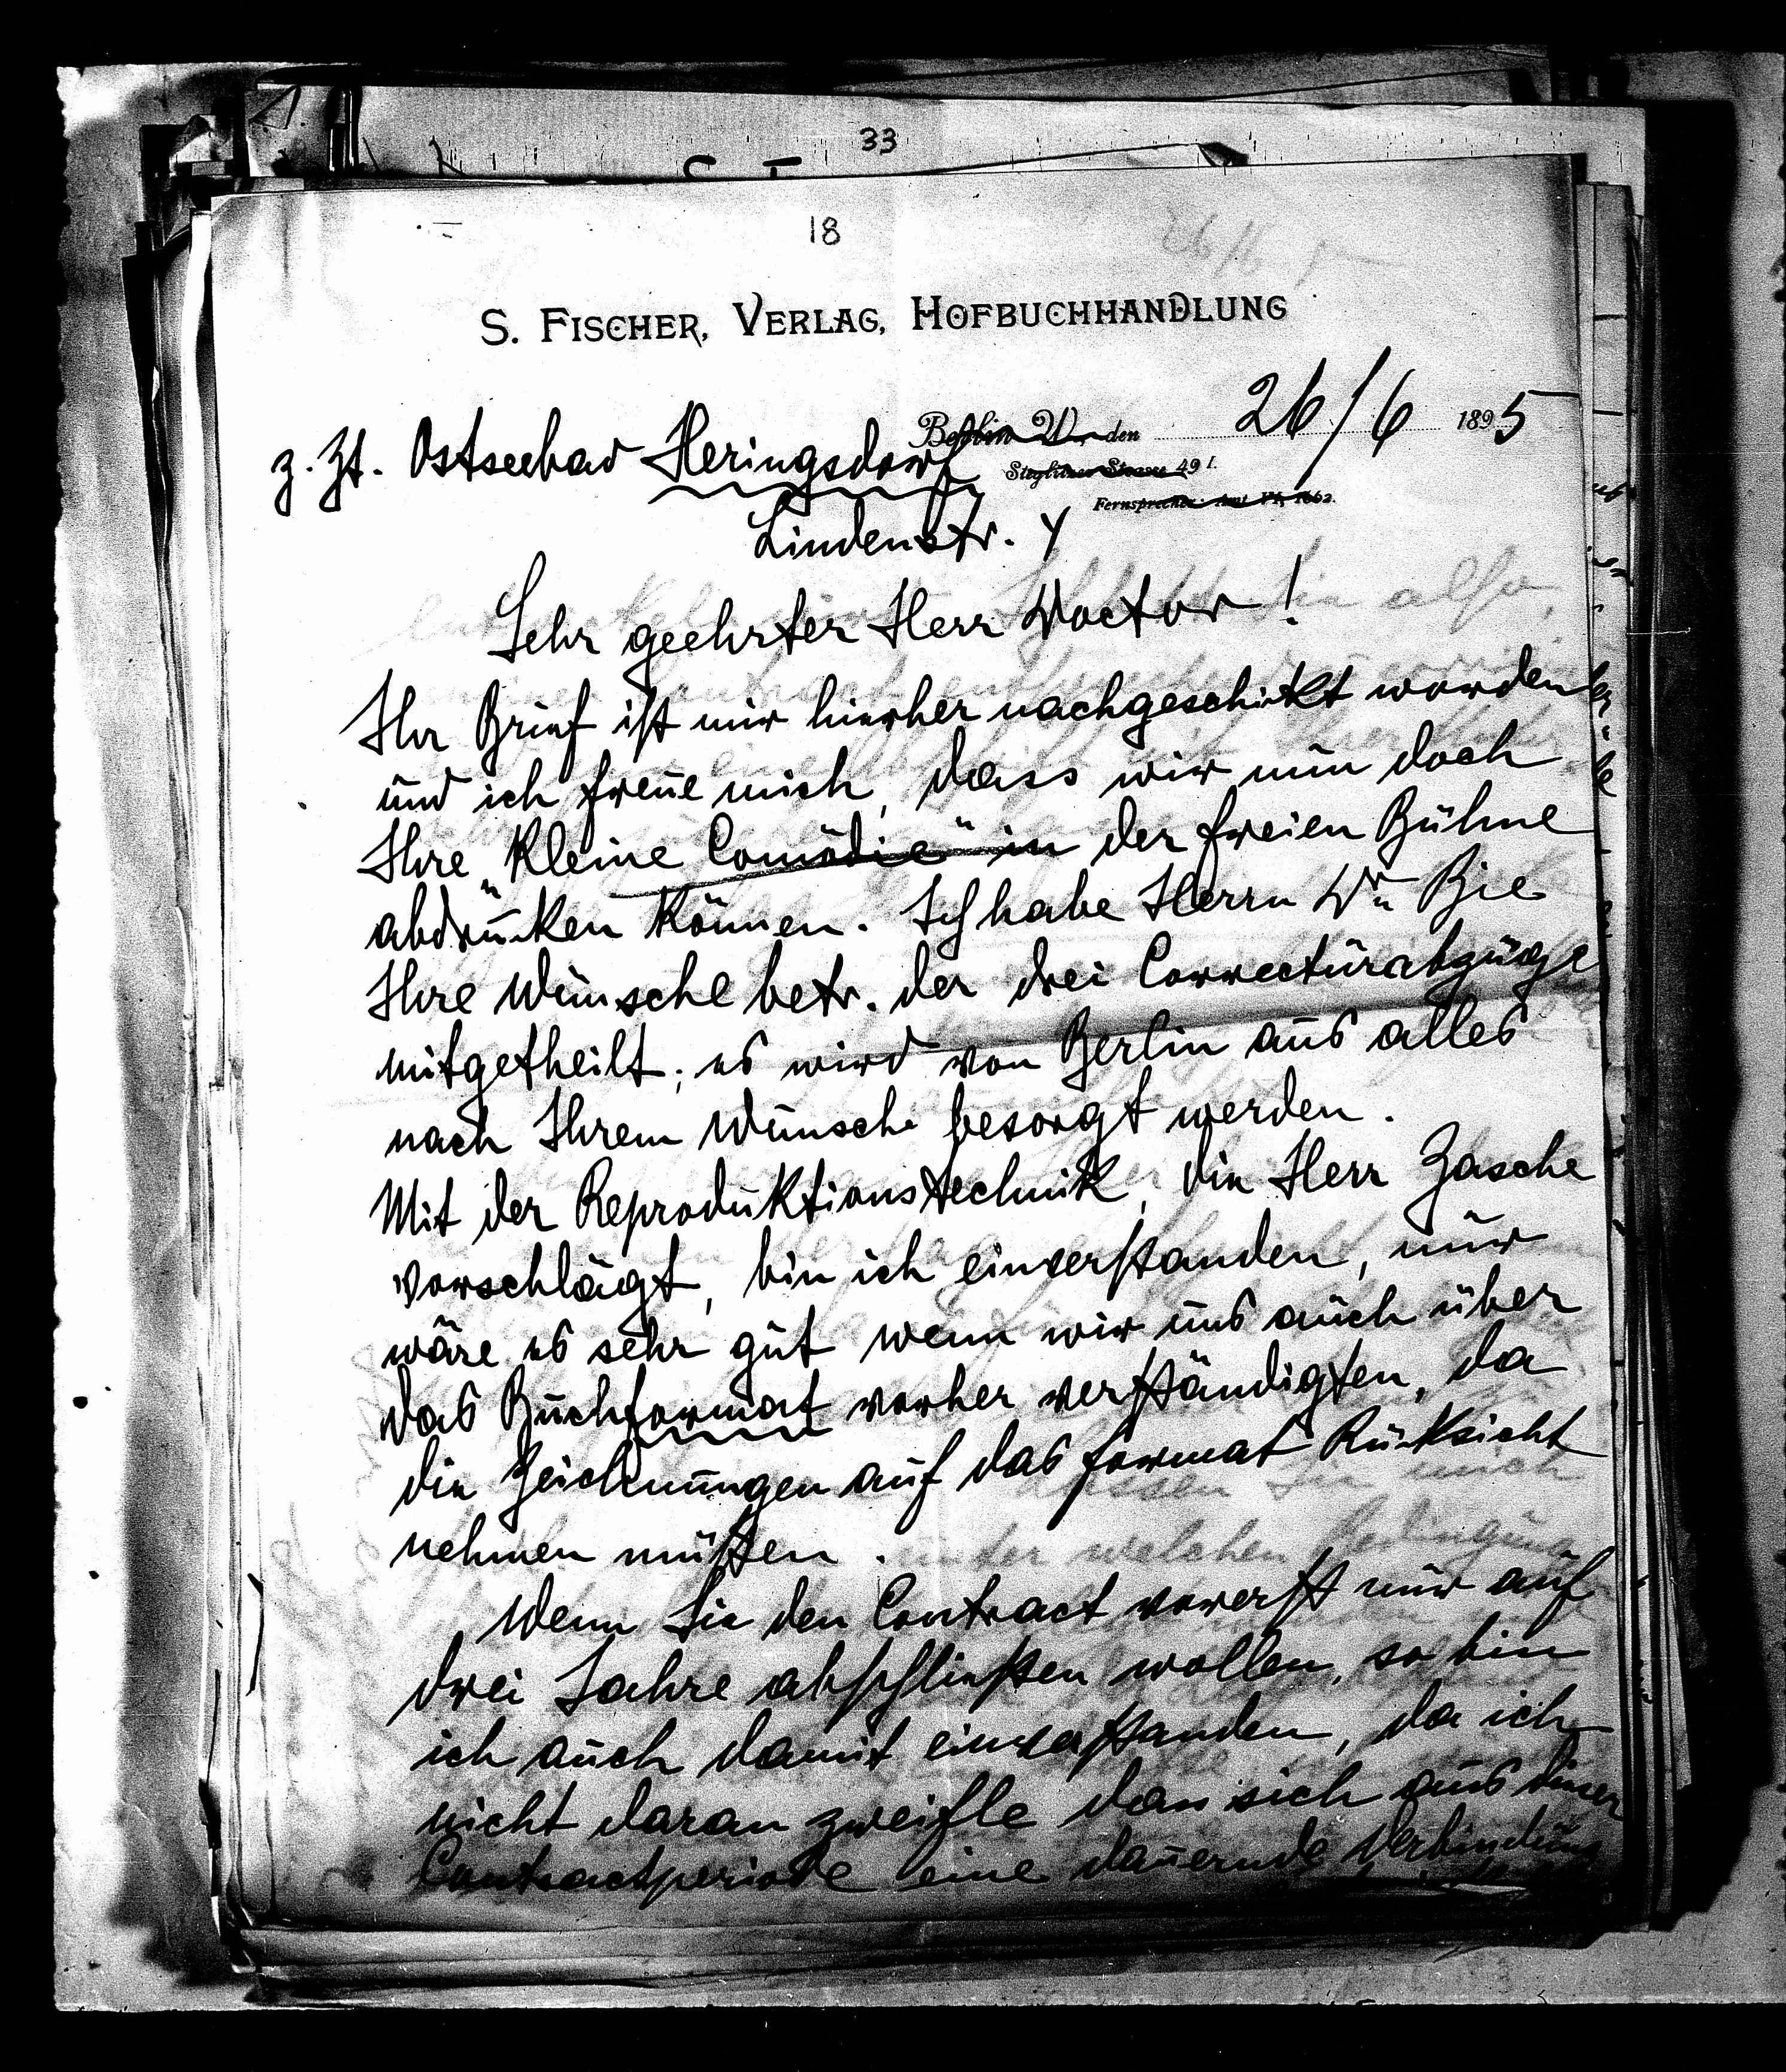 33
18
S. FISCHER, VERLAG, HOFBUCHHANDLUNG
Berlin W. den 26/6 1895
z. Zt. Ostseebad Heringsdorf
Steglitzer Strasse 49 I.
Fernsprecher: Amt VI, 1662.
Lindenstr. 4
Sehr geehrter Herr Doctor!
Ihr Brief ist mir hierher nachgeschikt worden
und ich freue mich, dass wir nun doch
Ihre „Kleine Comödie“ in der freien Bühne
abdruken können. Ich habe Herrn Dr. Bie
Ihre Wünsche betr. der drei Correcturabzüge
mitgetheilt; es wird von Berlin aus alles
nach Ihrem Wunsche besorgt werden.
Mit der Reproduktionstechnik, die Herr Zasche
vorschlägt, bin ich einverstanden, nur
wäre es sehr gut wenn wir uns auch über
das Buchformat vorher verständigten, da
die Zeichnungen auf das Format Rüksicht
nehmen müßten.
Wenn Sie den Contract vorerst nur auf
drei Jahre abschließen wollen, so bin
ich auch damit einverstanden, da ich
nicht daran zweifle dass sich aus dieser
Contractperiode eine dauernde Verbindung